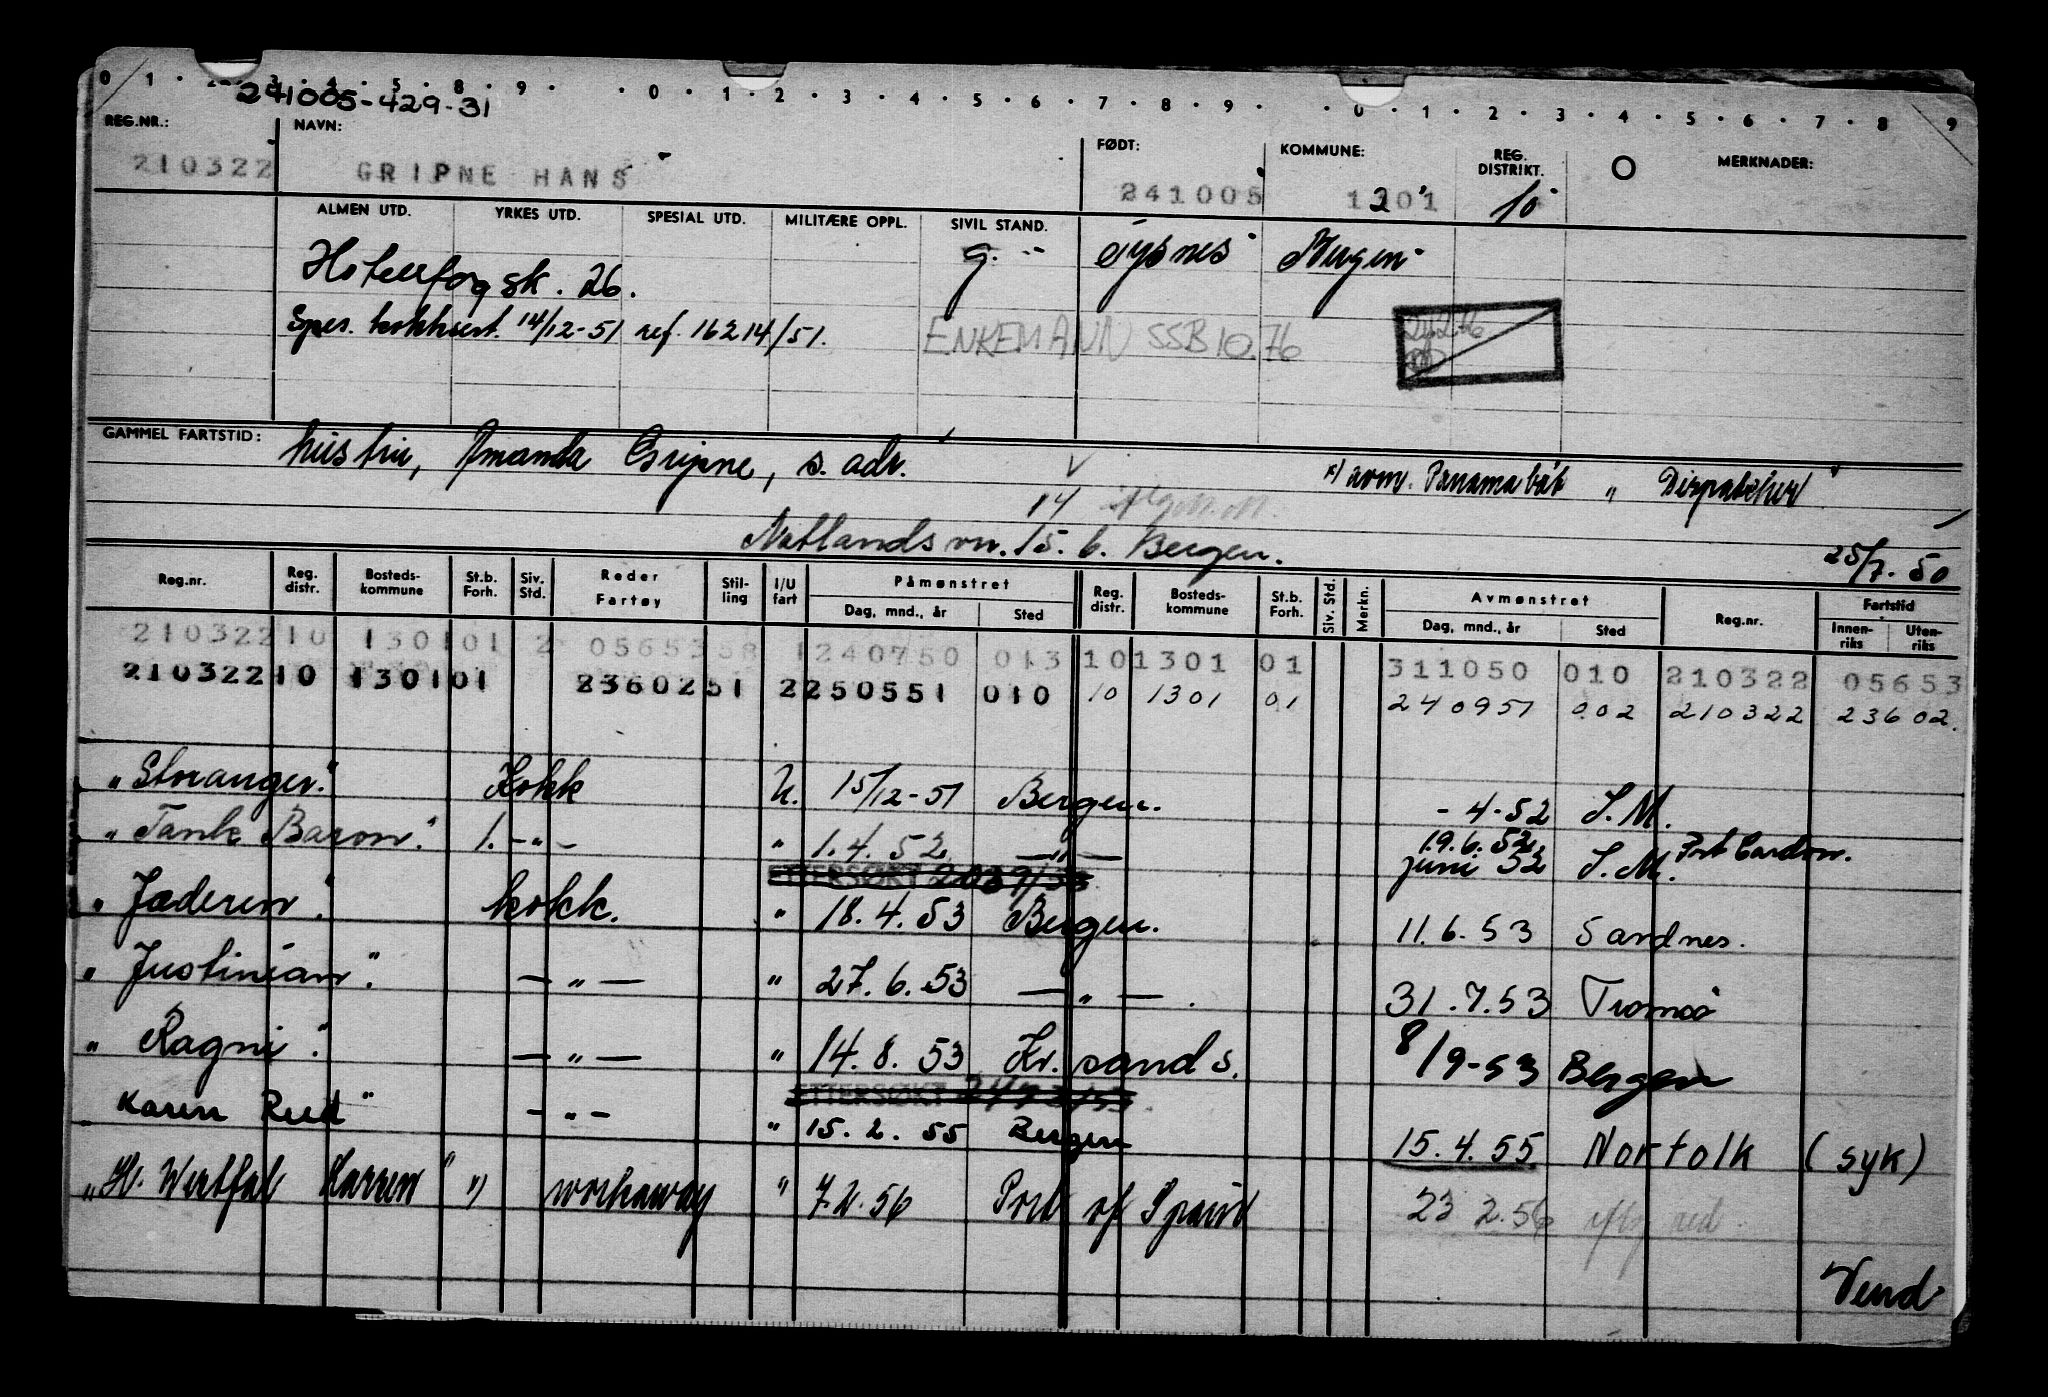 0 1 · 3 · 4 · 5 · 8 · 9 · · 0 · 1 · 2 · 3 · 4 · 5 · 6 · 7 · 8 · 9 · · 0 · 1 · 2 · 3 · 4 · 5 · 6 · 7 · 8 · 9
241005-429-31
REG.NR.: NAVN: FØDT: KOMMUNE: REG. DISTRIKT. O MERKNADER:
210322 GRIPNE HANS 241005 1201 10
ALMEN UTD. YRKES UTD. SPESIAL UTD. MILITÆRE OPPL. SIVIL STAND.
Hotellfagsk. 26. g. Tysnes Bergen
Spes. kokksert. 14/12-51 ref. 16214/51. ENKEMANN SSB 10.76
GAMMEL FARTSTID: hustru, Amanda Gripne, s. adr.
x) avm. Panamabåt "Dispatcher"
14
Natlandsvn. 15. b. Bergen. 25/7. 50
Reg.nr. Reg. distr. Bosteds-kommune St.b. Forh. Siv. Std. Reder Fartøy Stil-ling I/U fart Påmønstret Dag, mnd., år Sted Reg. distr. Bosteds-kommune St.b. Forh. Siv. Std. Merkn. Avmønstret Dag, mnd., år Sted Reg.nr. Fartstid Innen-riks Uten-riks
210322 10 1301 01 2 05653 58 1 240750 013 10 1301 01 311050 010 210322 05653
210322 10 1301 01 23602 51 2 250551 010 10 1301 01 240951 002 210322 23602.
"Storanger." Kokk U. 15/12-51 Bergen. - 4-52 S.M.
"Tank Baron." 1. -"- " 1.4.52 -"- 19.6.52 Port Cardon.
juni 52 S.M.
ETTERSØKT
"Jæderen". kokk. " 18.4.53 Bergen. 11.6.53 Sandnes.
"Justinian". -"- " 27.6.53 -"-. 31.7.53 Tromsø
"Ragni". -"- " 14.8.53 Kr.sand s. 8/9-53 Bergen
ETTERSØKT
Karen Reed" -"- " 15.2.55 Bergen 15.4.55 Norfolk (syk)
"H. Westfal Larsen" ") workaway " 7.2.56 Port of Spain 23 2.56 iflg red.
Vend